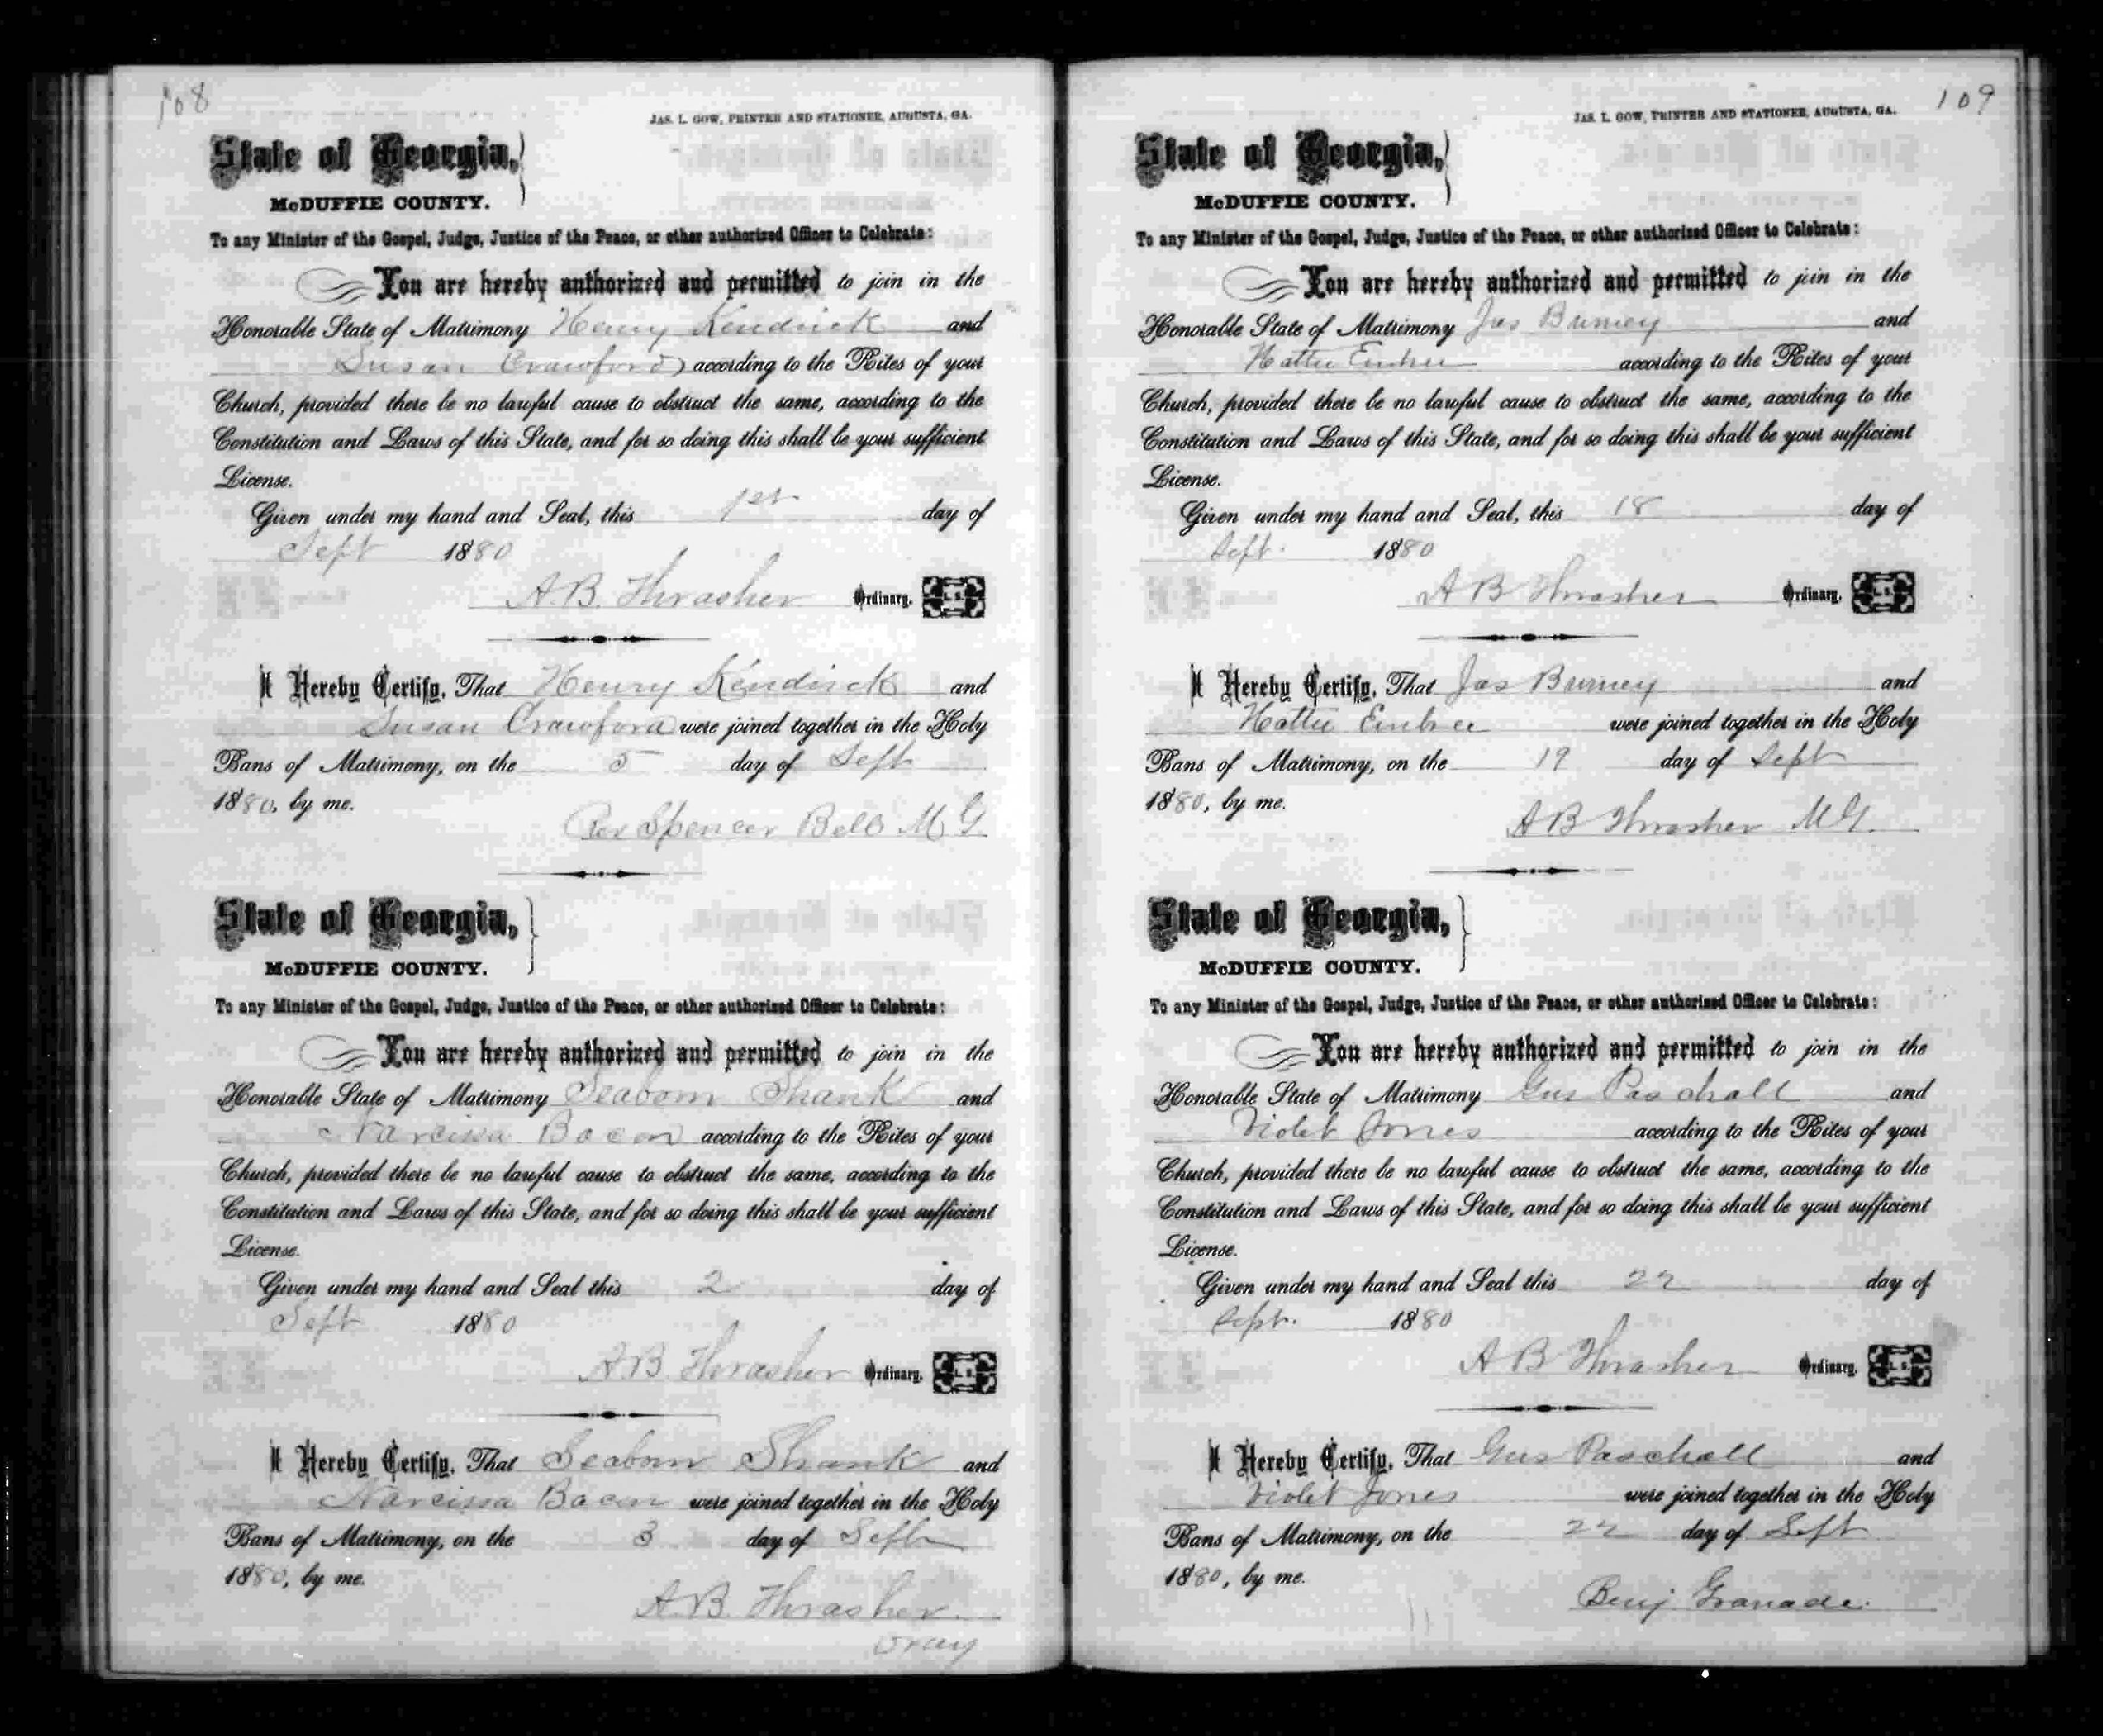 108
JAS. L. GOW, PRINTER AND STATIONER, AUGUSTA, GA.
State of Georgia,
McDUFFIE COUNTY.
To any Minister of the Gospel, Judge, Justice of the Peace, or other authorized Officer to Celebrate:
You are hereby authorized and permitted to join in the
Honorable State of Matrimony Henry Kendrick and
Susan Crawford according to the Rites of your
Church, provided there be no lawful cause to obstruct the same, according to the
Constitution and Laws of this State, and for so doing this shall be your sufficient
License.
Given under my hand and Seal, this 1st day of
Sept 1880
A.B. Thrasher Ordinary. L.S.
I Hereby Certify, That Henry Kendrick and
Susan Crawford were joined together in the Holy
Bans of Matrimony, on the 5 day of Sept
1880, by me.
Rev Spencer Bell M G
State of Georgia,
McDUFFIE COUNTY.
To any Minister of the Gospel, Judge, Justice of the Peace, or other authorized Officer to Celebrate:
You are hereby authorized and permitted to join in the
Honorable State of Matrimony Seaborn Shank and
Narcissa Bacon according to the Rites of your
Church, provided there be no lawful cause to obstruct the same, according to the
Constitution and Laws of this State, and for so doing this shall be your sufficient
License.
Given under my hand and Seal this 2 day of
Sept 1880
A.B. Thrasher Ordinary. L.S.
I Hereby Certify, That Seaborn Shank and
Narcissa Bacon were joined together in the Holy
Bans of Matrimony, on the 3 day of Sept
1880, by me.
A.B. Thrasher.
Ordy
109
JAS. L. GOW, PRINTER AND STATIONER, AUGUSTA, GA.
State of Georgia,
McDUFFIE COUNTY.
To any Minister of the Gospel, Judge, Justice of the Peace, or other authorized Officer to Celebrate:
You are hereby authorized and permitted to join in the
Honorable State of Matrimony Jas Burney and
Hattie Embree according to the Rites of your
Church, provided there be no lawful cause to obstruct the same, according to the
Constitution and Laws of this State, and for so doing this shall be your sufficient
License.
Given under my hand and Seal, this 18 day of
Sept. 1880
A B Thrasher Ordinary. L.S.
I Hereby Certify, That Jas Burney and
Hattie Embree were joined together in the Holy
Bans of Matrimony, on the 19 day of Sept
1880, by me.
A B Thrasher M.G.
State of Georgia,
McDUFFIE COUNTY.
To any Minister of the Gospel, Judge, Justice of the Peace, or other authorized Officer to Celebrate:
You are hereby authorized and permitted to join in the
Honorable State of Matrimony Gus Paschall and
Violet Jones according to the Rites of your
Church, provided there be no lawful cause to obstruct the same, according to the
Constitution and Laws of this State, and for so doing this shall be your sufficient
License.
Given under my hand and Seal this 22 day of
Sept. 1880
A B Thrasher Ordinary. L.S.
I Hereby Certify, That Gus Paschall and
Violet Jones were joined together in the Holy
Bans of Matrimony, on the 22 day of Sept
1880, by me.
Benj. Granade.